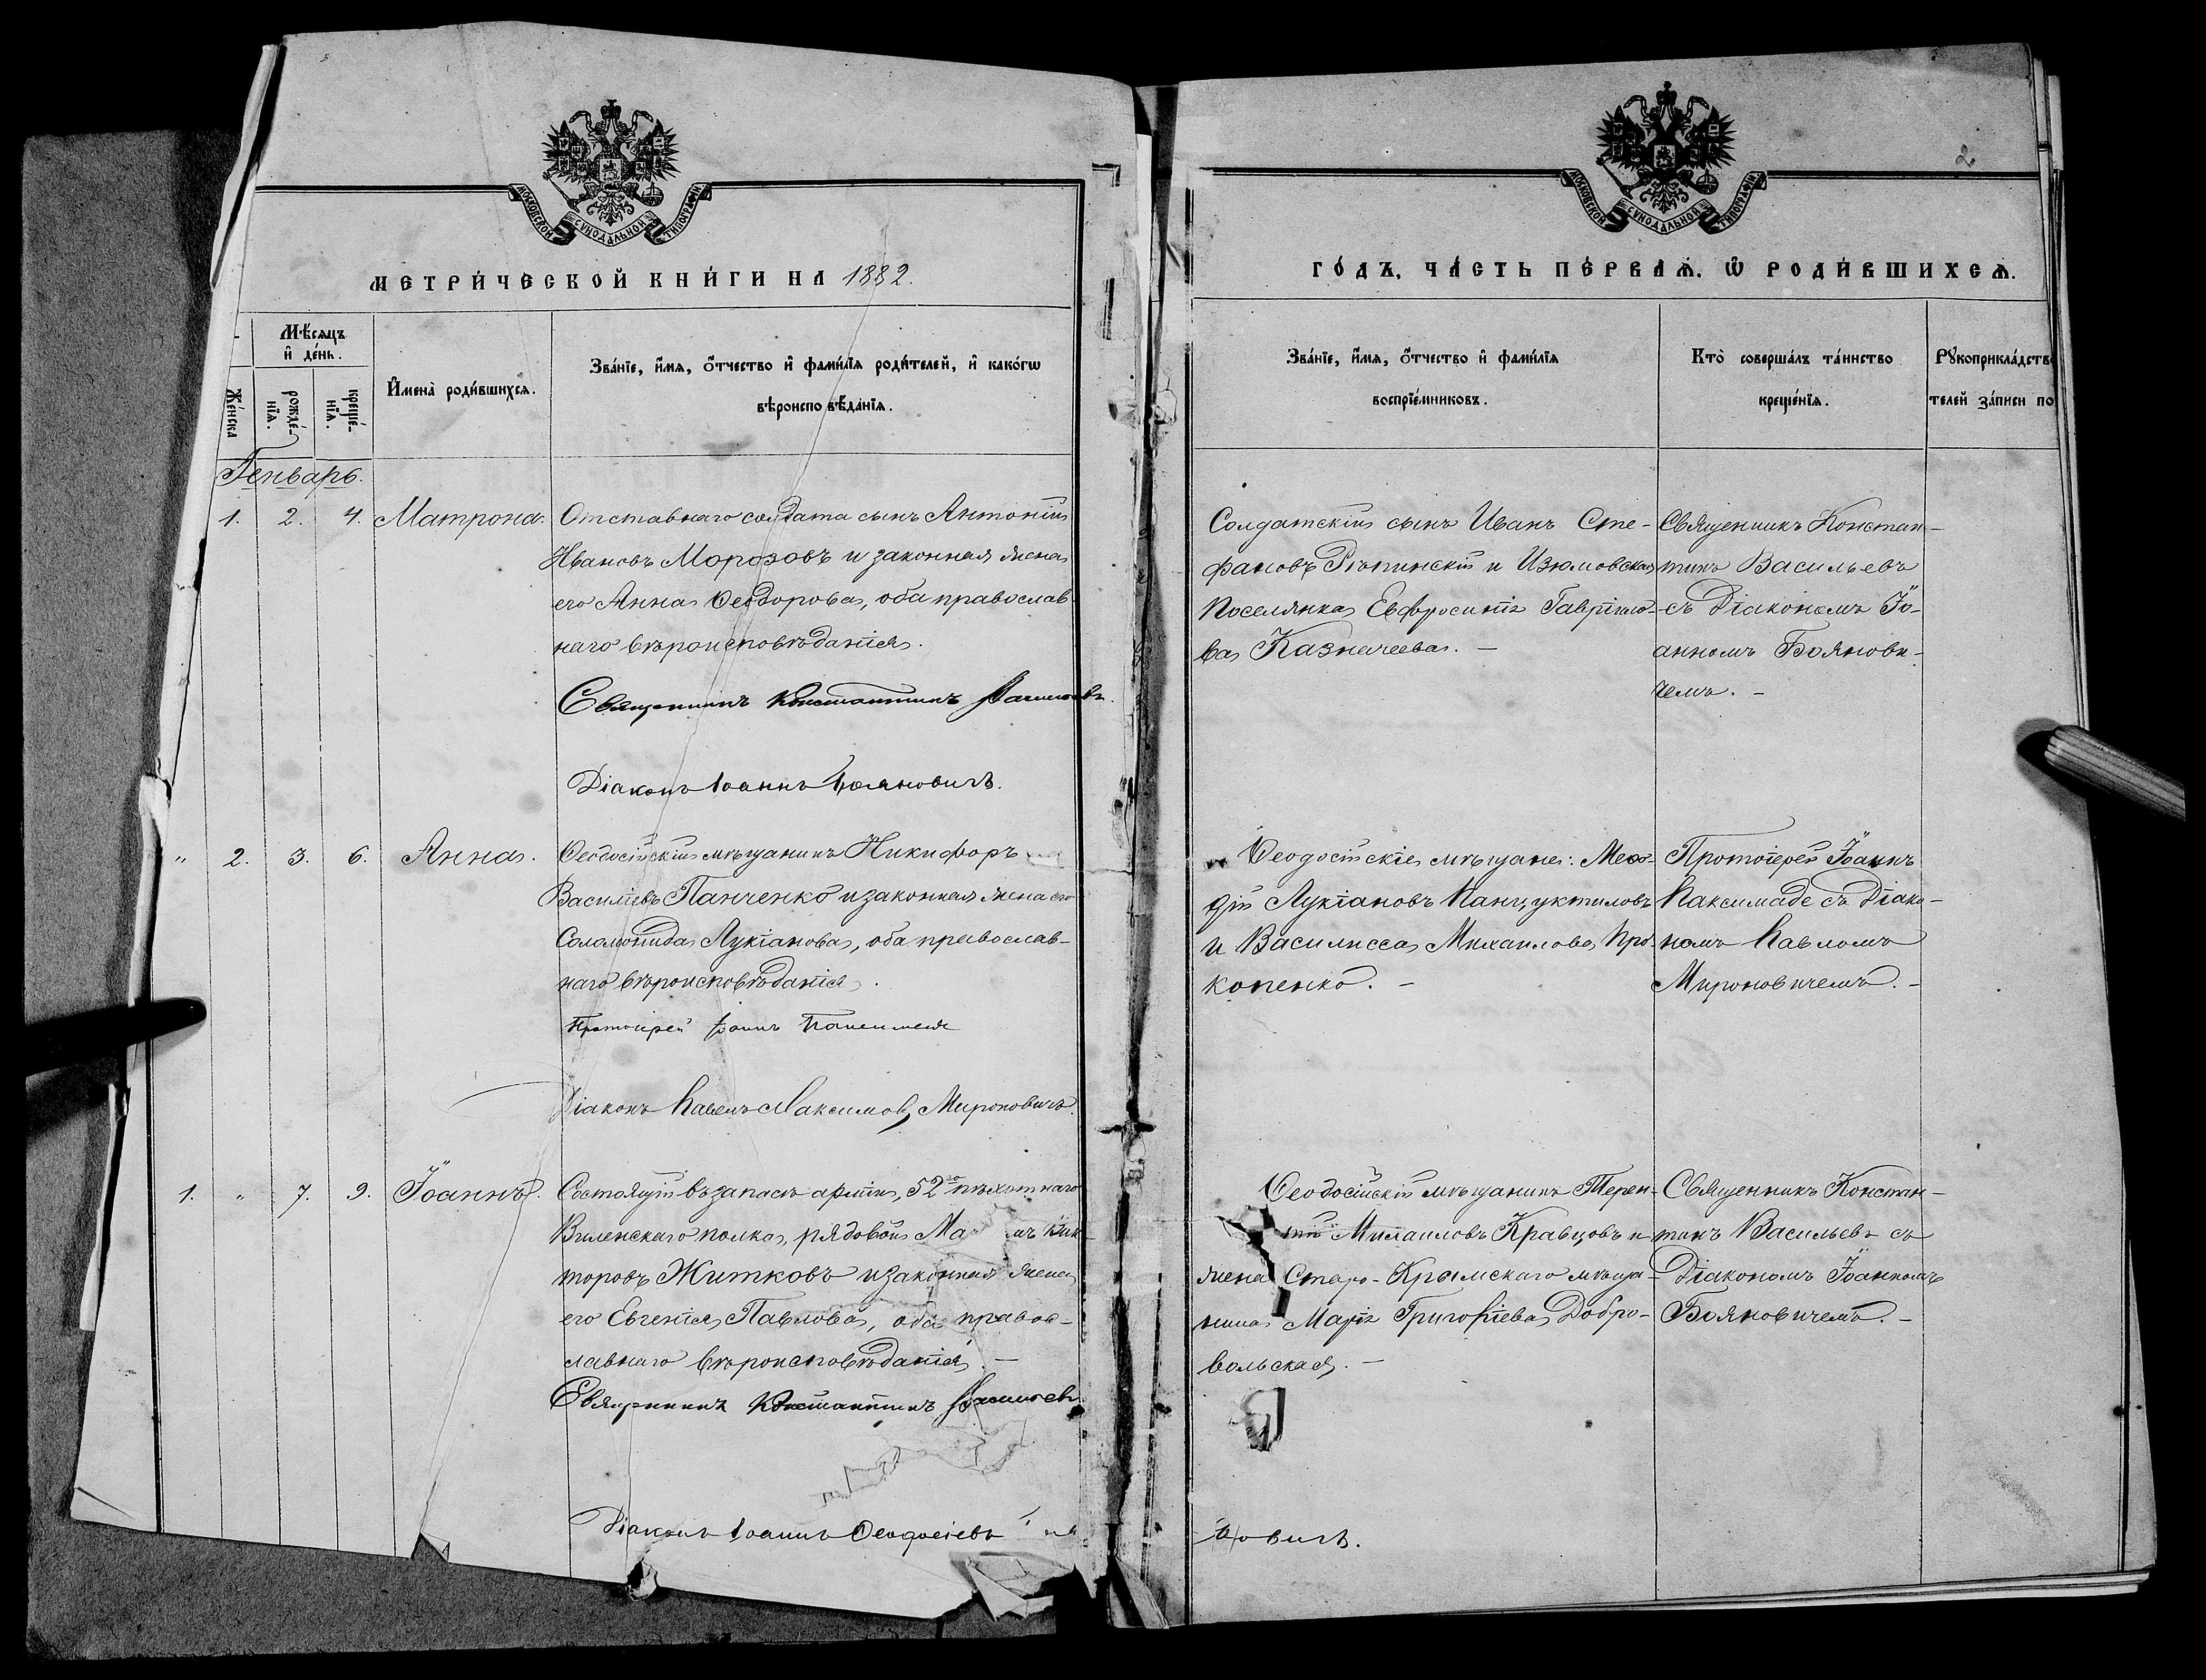 МОСКОВСКОЙ СУНОДАЛЬНОЙ ТИПОГРАФІИ
МЕТРИ́ЧЕСКОЙ КНИ́ГИ НА 1882.
Мѣ́сяцъ
и҆ де́нь.
Же́нска
рожде́-
нїѧ.
креще́-
нїѧ.
И҆мена̀ роди́вшихсѧ.
Зва́нїе, и҆́мѧ, ѻ҆́тчество и҆ фами́лїѧ роди́телей, и҆ како́гѡ
вѣроисповѣ́данїѧ.
Генварь.
1. 2. 4. Матрона.
Отставнаго солдата сынъ Антоній
Ивановъ Морозовъ и законная жена
его Анна Ѳеодорова, оба православ-
наго вѣроисповѣданія.
Священникъ Константинъ Васильевъ.
Діаконъ Іоаннъ Бояновичъ.
" 2. 3. 6. Анна.
Ѳеодосійскій мѣщанинъ Никифоръ
Василіевъ Панченко и законная жена его
Соломонида Лукіанова, оба православ-
наго вѣроисповѣданія.
Протоіерей Іоаннъ
Діаконъ Павелъ Максимовъ Мироновичъ.
1. " 7. 9. Іоаннъ.
Состоящій въ запасѣ арміи, 52го пѣхотнаго
Виленскаго полка, рядовой Ма мъ Вик-
торовъ Житковъ и законная жена
его Евгенія Павлова, оба правос-
лавнаго вѣроисповѣданія. —
Священникъ Константинъ Васильевъ.
Діаконъ Іоаннъ Ѳеодосіевъ
2
МОСКОВСКОЙ СУНОДАЛЬНОЙ ТИПОГРАФІИ
ГО́ДЪ, ЧА́СТЬ ПЕ́РВАѦ. Ѡ҆ РОДИ́ВШИХСѦ.
Зва́нїе, и҆́мѧ, ѻ҆́тчество и҆ фами́лїѧ
воспрїе́мниковъ.
Кто̀ соверша́лъ та́инство
креще́нїѧ.
Рꙋкоприкла́дство
телей за́писи по
Солдатскій сынъ Иванъ Сте-
фановъ Рѣпинскій и Изюмовская
Поселянка Евфросинія Гавріило-
ва Казначеева. —
Священникъ Констан-
тинъ Васильевъ
съ Діакономъ Іо-
анномъ Боянови-
чемъ. —
Ѳеодосійскіе мѣщане: Меѳо-
дій Лукіановъ Панцуктиловъ
и Василисса Михаилова Про-
копенко. —
Протоіерей Іоаннъ
Паксимаде съ Діако-
номъ Павломъ
Мироновичемъ. —
Ѳеодосійскій мѣщанинъ Терен-
тій Михаиловъ Кравцовъ и
жена Старо-Крымскаго мѣща-
нина Марія Григоріева Добро-
вольская. —
Священникъ Констан-
тинъ Васильевъ съ
Діакономъ Іоанномъ
Бояновичемъ. —
новичъ.